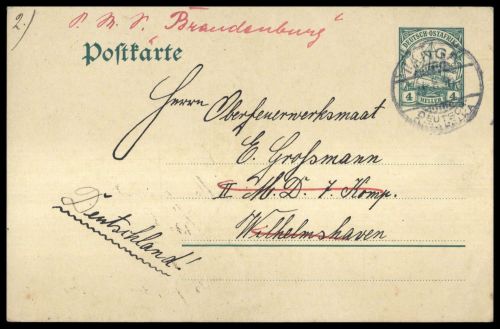 2)
S. M. S. "Brandenburg"
Postkarte
DEUTSCH-OSTAFRIKA
4 4
HELLER
TANGA
DEUTSCH
Herrn Oberfeuerwerksmaat
E. Großmann
II M. D. 7. Komp.
Wilhelmshaven
Deutschland!